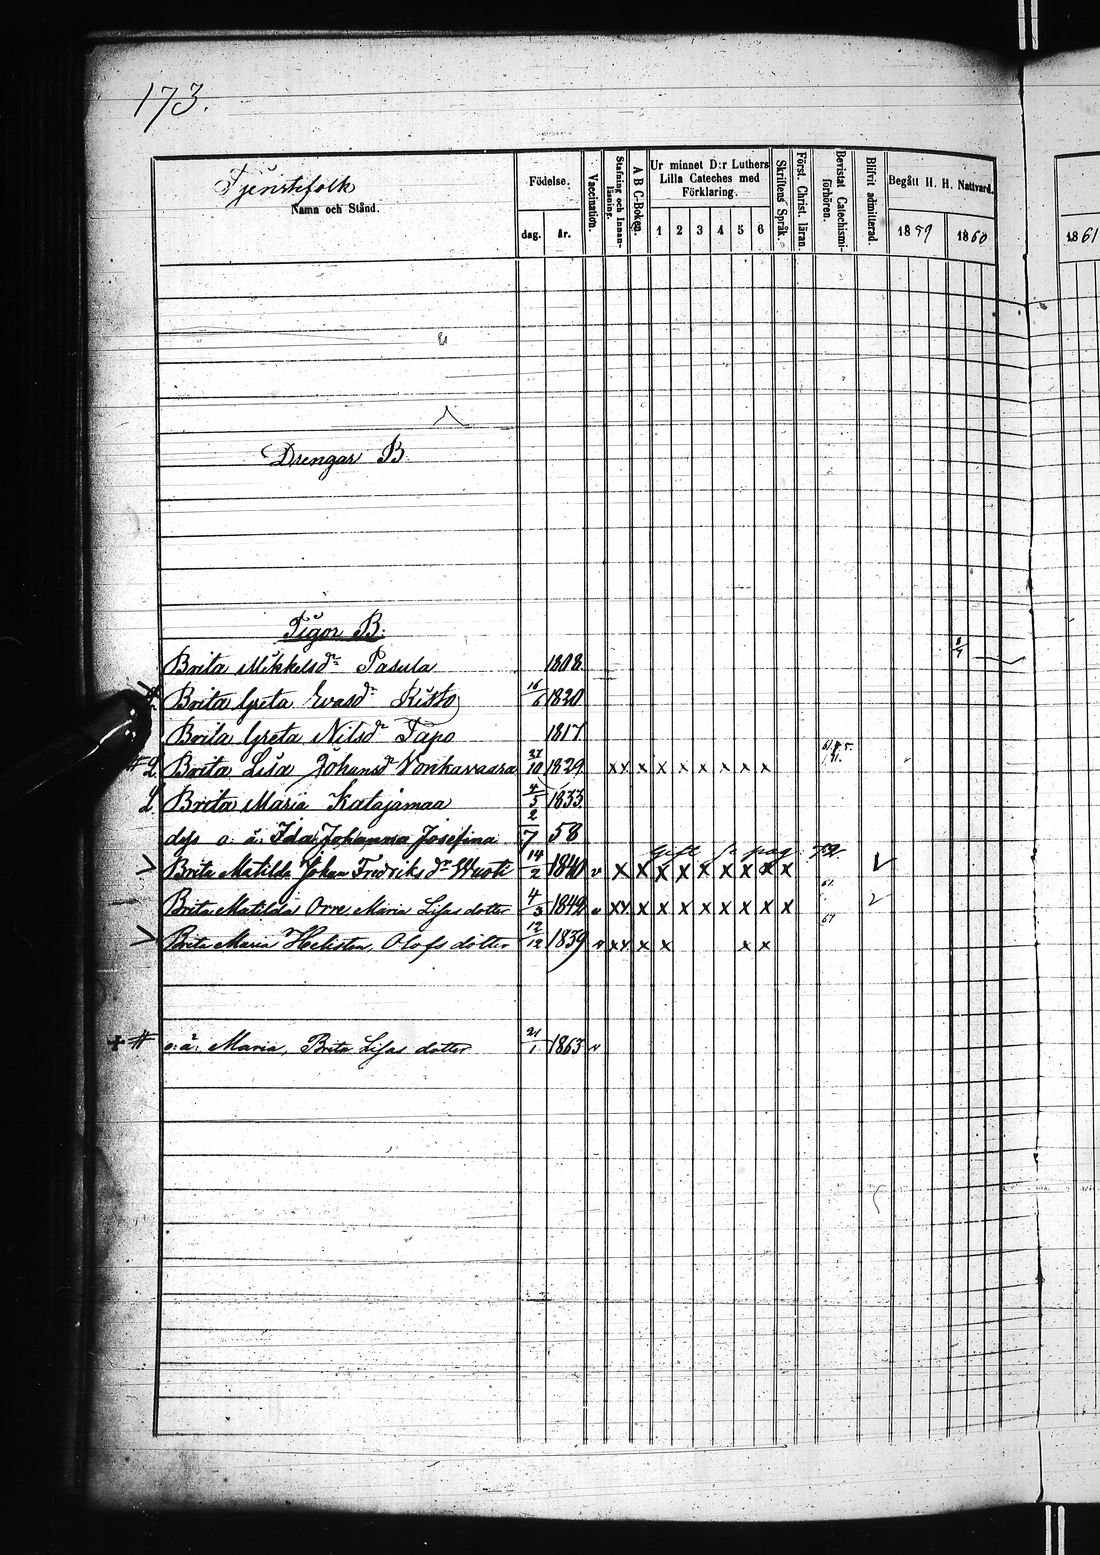 173.
Tjenstefolk
Namn och Stånd.
Födelse.
dag. år.
Vaccination.
Stafning och Innanläsning.
A B C-Boken.
Ur minnet D:r Luthers Lilla Cateches med Förklaring.
1 2 3 4 5 6
Skriftens Språk.
Först. Christ. läran.
Bevistat Catechismiförhören.
Blifvit admitterad.
Begått H. H. Nattvard.
1859 1860
1861
Drengar B.
Pigor B.
Brita Mikkelsdr Pasula 1808
# Brita Greta Evasdr Kisto 16/6 1820
Brita Greta Nilsdr Tapo 1817
# L Brita Lisa Johansd Vonkavaara 27/10 1829 x x x x x x x x x
L Brita Maria Katajamaa 4/5 1833
dess o. ä. Ida Johanna Josefina 2/7 58
Gift se pag.
> Brita Matilda Johan Fredriksdr Wuoti 14/2 1840 v x x x x x x x x x V
Brita Matilda Orre, Maria Lisas dotter 4/3 1842 v x x x x x x x x x x 61.
> Brita Maria Hekisten, Olofs dotter 12/12 1839 v x x x x x x 64
+ # o: ä: Maria, Brita Lisas dotter 21/1 1863 v